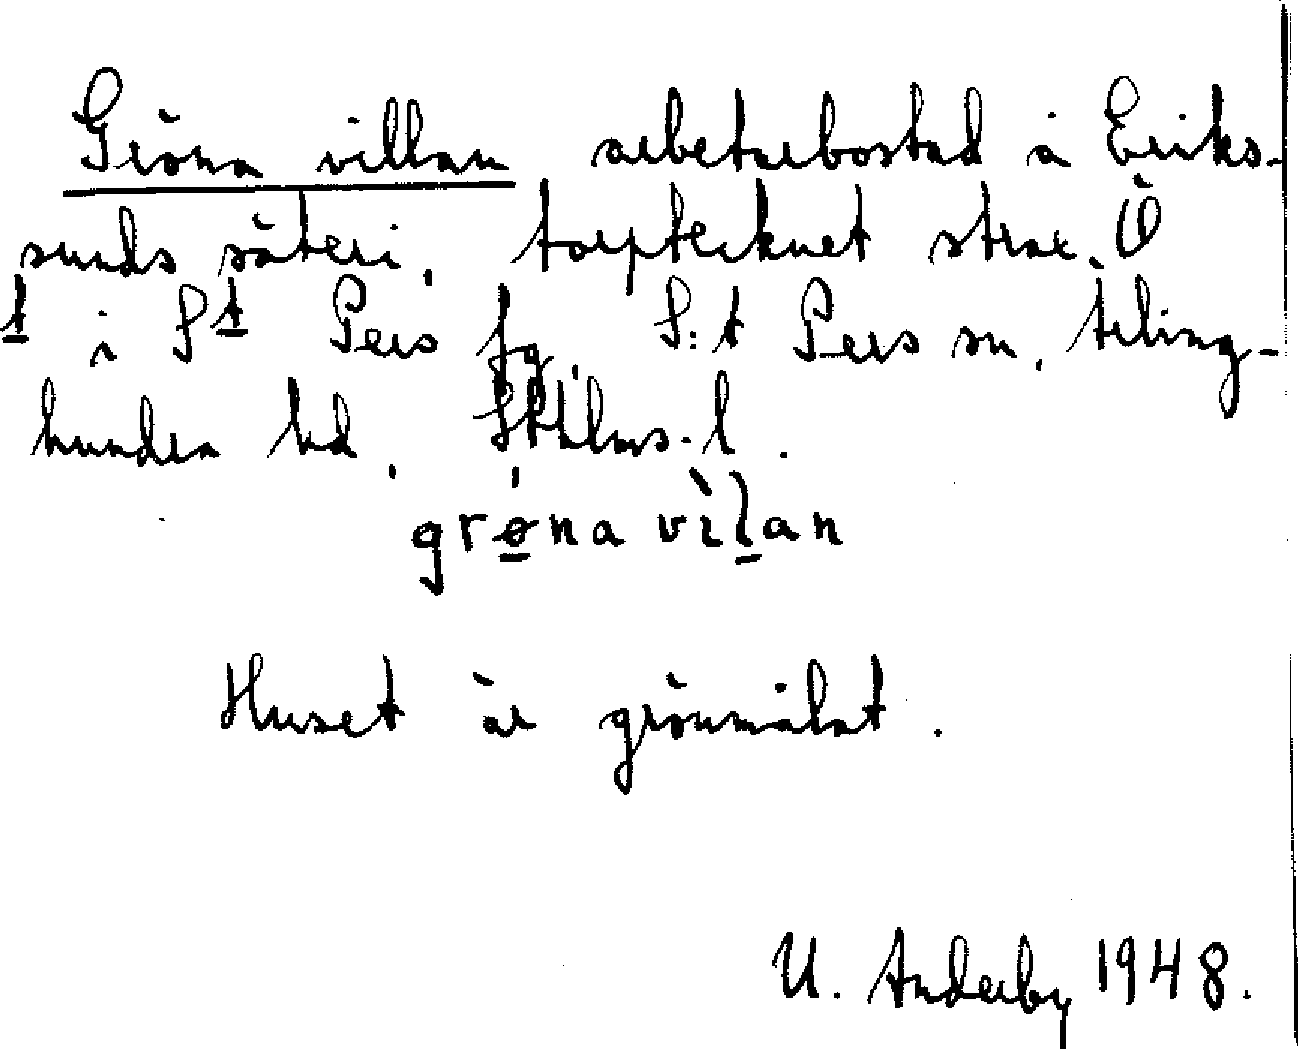 Gröna villan arbetarbostad å Eriks-
sunds säteri, torptecknet strax Ö
t i St Pers fg, S:t Pers sn, Ärling-
hundra hd, Sthlms l.
grøna vìlan
Huset är grönmålat.
U. Anderby 1948.